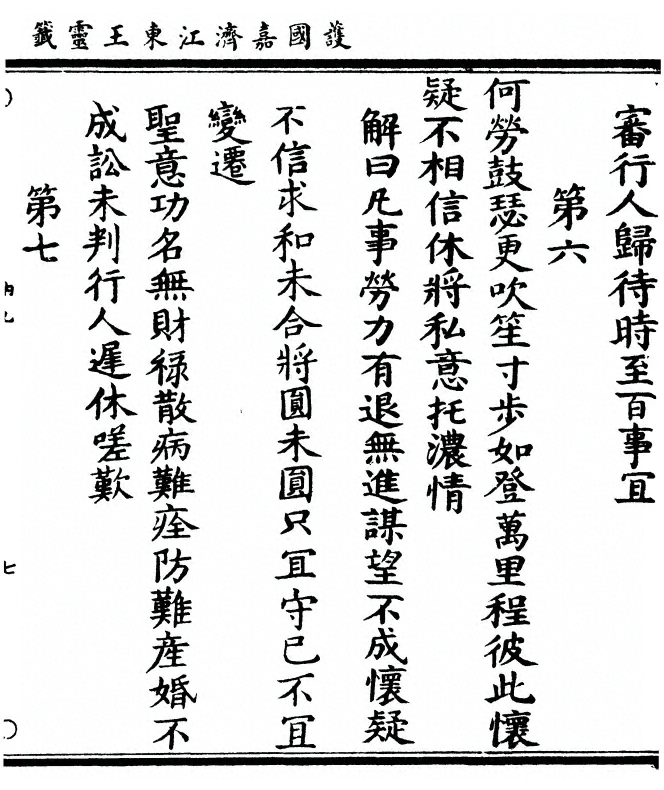 護國嘉濟江東王靈籤
審行人歸待時至百事冝
第六
何勞鼓瑟更吹笙寸步如登萬里程彼此懷
疑不相信休將私意托濃情
解曰凡事勞力有退無進謀望不成懷疑
不信求和未合將圓未圓只冝守已不冝
變遷
聖意功名無財禄散病難痊防難産婚不
成訟未判行人遲休嗟歎
第七
七